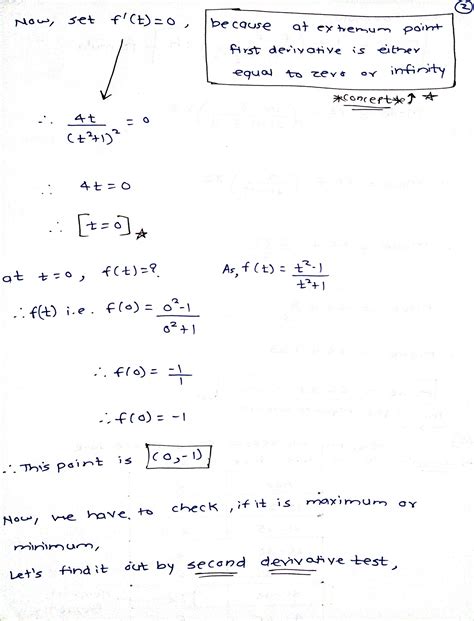 ②
Now, set f'(t)=0,
because at extremum point
first derivative is either
equal to zero or infinity
*concept* ↑ ☆
∴ 4t/(t²+1)² = 0
∴ 4t=0
∴ [t=0] ☆
at t=0, f(t)=?
As, f(t) = t²-1/t²+1
∴ f(t) i.e. f(0) = 0²-1/0²+1
∴ f(0) = -1/1
∴ f(0) = -1
∴ This point is (0,-1)
Now, we have to check, if it is maximum or
minimum,
Let's find it out by second derivative test,